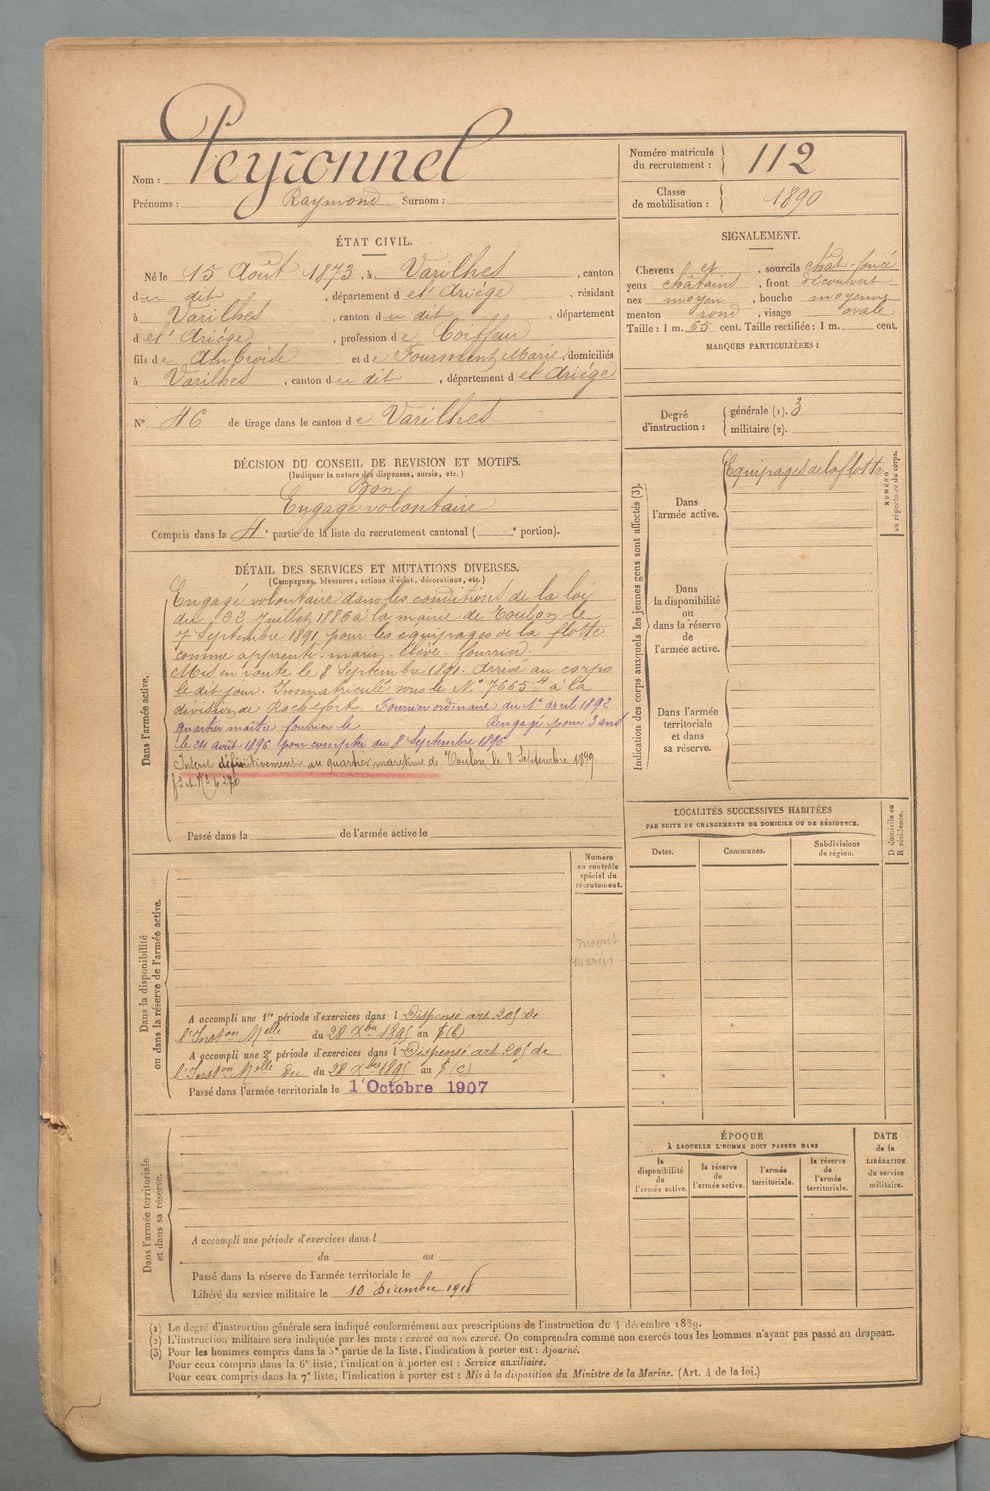 Nom : Peyronnel
Prénoms : Raymond Surnom :
Numéro matricule du recrutement : 112
Classe de mobilisation : 1890
ÉTAT CIVIL.
Né le 15 Août 1873, à Varilhes, canton
du dit, département de l'Ariége, résidant
à Varilhes, canton du dit, département
de l'Ariége, profession de Coiffeur
fils de Ambroise et de Fourment Marie, domiciliés
à Varilhes, canton du dit, département de l'Ariége
N° 46 de tirage dans le canton de Varilhes
SIGNALEMENT.
Cheveux et, sourcils chât-foncé
yeux châtains, front découvert
nez moyen, bouche moyenne
menton rond, visage ovale
Taille : 1 m. 65 cent. Taille rectifiée : 1 m. cent.
MARQUES PARTICULIÈRES :
Degré d'instruction : générale (1). 3
militaire (2).
DÉCISION DU CONSEIL DE REVISION ET MOTIFS.
(Indiquer la nature des dispenses, sursis, etc.)
Bon
Engagé volontaire
Compris dans la 4e partie de la liste du recrutement cantonal ( e portion).
DÉTAIL DES SERVICES ET MUTATIONS DIVERSES.
(Campagnes, blessures, actions d'éclat, décorations, etc.)
Dans l'armée active.
Engagé volontaire dans les conditions de la loi
du 22 Juillet 1886 à la mairie de Toulon le
7 Septembre 1891 pour les équipages de la flotte
comme apprenti-marin-élève-fourrier.
Mis en route le 8 Septembre 1891. Arrivé au corps
le dit jour. Immatriculé sous le N° 7665-4 à la
division de Rochefort. Fourrier ordinaire du 1er avril 1892
quartier maître fourrier le Rengagé pour 3 ans
le 24 avril 1896 pour compter du 8 Septembre 1896
Inscrit définitivement au quartier maritime de Toulon le 8 Septembre 1899
fo et No 4270
Passé dans la de l'armée active le
Indication des corps auxquels les jeunes gens sont affectés (3).
Dans l'armée active.
Equipages de la flotte
NUMÉRO au répertoire du corps.
Dans la disponibilité ou dans la réserve de l'armée active.
Dans l'armée territoriale et dans sa réserve.
LOCALITÉS SUCCESSIVES HABITÉES
PAR SUITE DE CHANGEMENTS DE DOMICILE OU DE RÉSIDENCE.
D. domicile ou R. résidence.
Dates. Communes. Subdivisions de région.
Dans la disponibilité ou dans la réserve de l'armée active.
Numéro au contrôle spécial du recrutement.
inscrit
marin
A accompli une 1re période d'exercices dans l Dispense art 205 de
l'Instion Melle du 28 Xbre 1895 au § (b)
A accompli une 2e période d'exercices dans l Dispensé art 205 de
l'Instion Melle du du 28 Xbre 1895 au § (c)
Passé dans l'armée territoriale le 1er Octobre 1907
Dans l'armée territoriale et dans sa réserve.
A accompli une période d'exercices dans l
du au
Passé dans la réserve de l'armée territoriale le
Libéré du service militaire le 10 Décembre 1918
ÉPOQUE
À LAQUELLE L'HOMME DOIT PASSER DANS
la disponibilité de l'armée active.
la réserve de l'armée active.
l'armée territoriale.
la réserve de l'armée territoriale.
DATE de la LIBÉRATION du service militaire.
(1) Le degré d'instruction générale sera indiqué conformément aux prescriptions de l'instruction du 4 décembre 1889.
(2) L'instruction militaire sera indiquée par les mots : exercé ou non exercé. On comprendra comme non exercés tous les hommes n'ayant pas passé au drapeau.
(3) Pour les hommes compris dans la 5e partie de la liste, l'indication à porter est : Ajourné.
Pour ceux compris dans la 6e liste, l'indication à porter est : Service auxiliaire.
Pour ceux compris dans la 7e liste, l'indication à porter est : Mis à la disposition du Ministre de la Marine. (Art. 4 de la loi.)